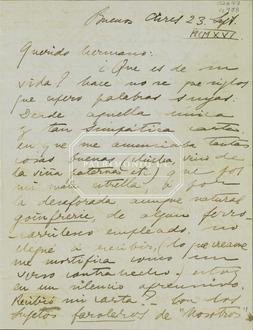 Buenos Aires 23
MCMXVI.
Querido hermano:
¡Que es de mi
vida? hace no se que siglos
que espero palabras suyas.
Desde aquella única
y tan simpática carta
en que me anunciaba tantas
cosas buenas (chicha, vino de
la viña paterna etc.) que por
mi mala estrella, o por
la desaforada aunque natural
de algun ferro-
carrilesco empleado, no
llegué a recibir, (lo que creame
me mortifica como un
verso contrahecho) estoy
en un silencio
Recibió mi carta? con dos
sujetos faroleros de "Nosotros"